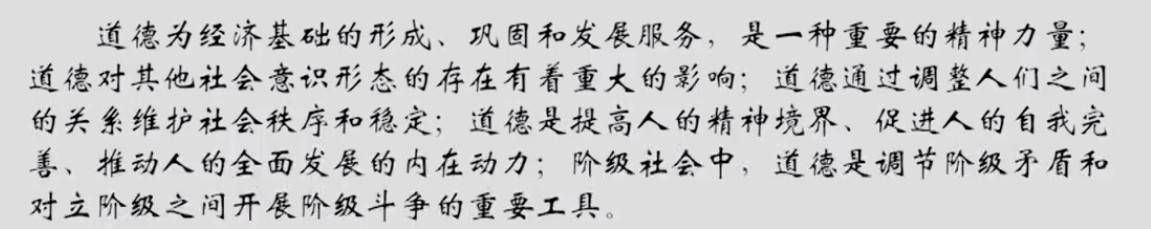 道德为经济基础的形成、巩固和发展服务，是一种重要的精神力量；
道德对其他社会意识形态的存在有着重大的影响；道德通过调整人们之间
的关系维护社会秩序和稳定；道德是提高人的精神境界、促进人的自我完
善、推动人的全面发展的内在动力；阶级社会中，道德是调节阶级矛盾和
对立阶级之间开展阶级斗争的重要工具。